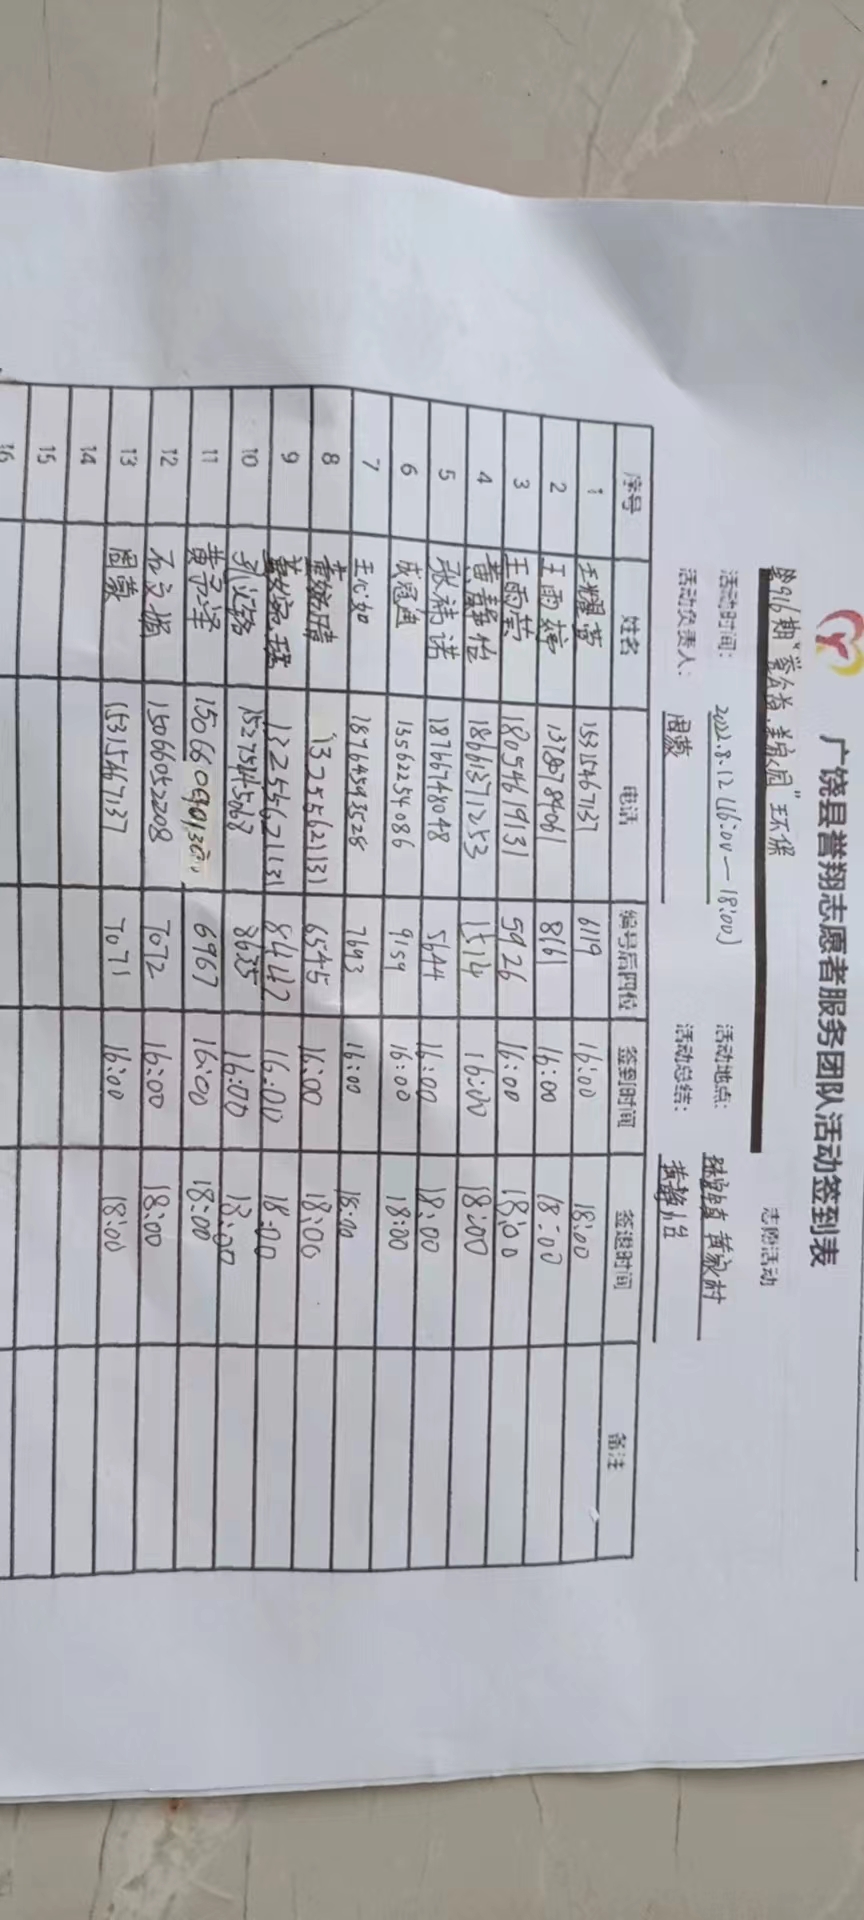 广饶县誉翔志愿者服务团队活动签到表
第916期“爱企首,美家园”环保 志愿活动
活动时间: 2022.8.12 (16:00—18:00) 活动地点: 黄家村
活动负责人: 周蒙 活动总结: 黄静怡
序号 姓名 电话 编号后四位 签到时间 签退时间 备注
1 王耀萱 15315467137 6119 16:00 18:00
2 王雨婷 13780784061 8161 16:00 18:00
3 王雨萱 18054619131 5926 16:00 18:00
4 黄静怡 18661371253 1514 16:00 18:00
5 张祎诺 18766748048 5644 16:00 18:00
6 成冠通 13562254086 9159 16:00 18:00
7 王心如 18764593528 7693 16:00 18:00
8 黄 晴 13255621131 6545 16:00 18:00
9 黄 13255621131 8447 16:00 18:00
10 15275415068 8635 16:00 18:00
11 黄子泽 6967 16:00 18:00
12 石文 15066052208 7072 16:00 18:00
13 周蒙 15315467137 7071 16:00 18:00
14
15
16